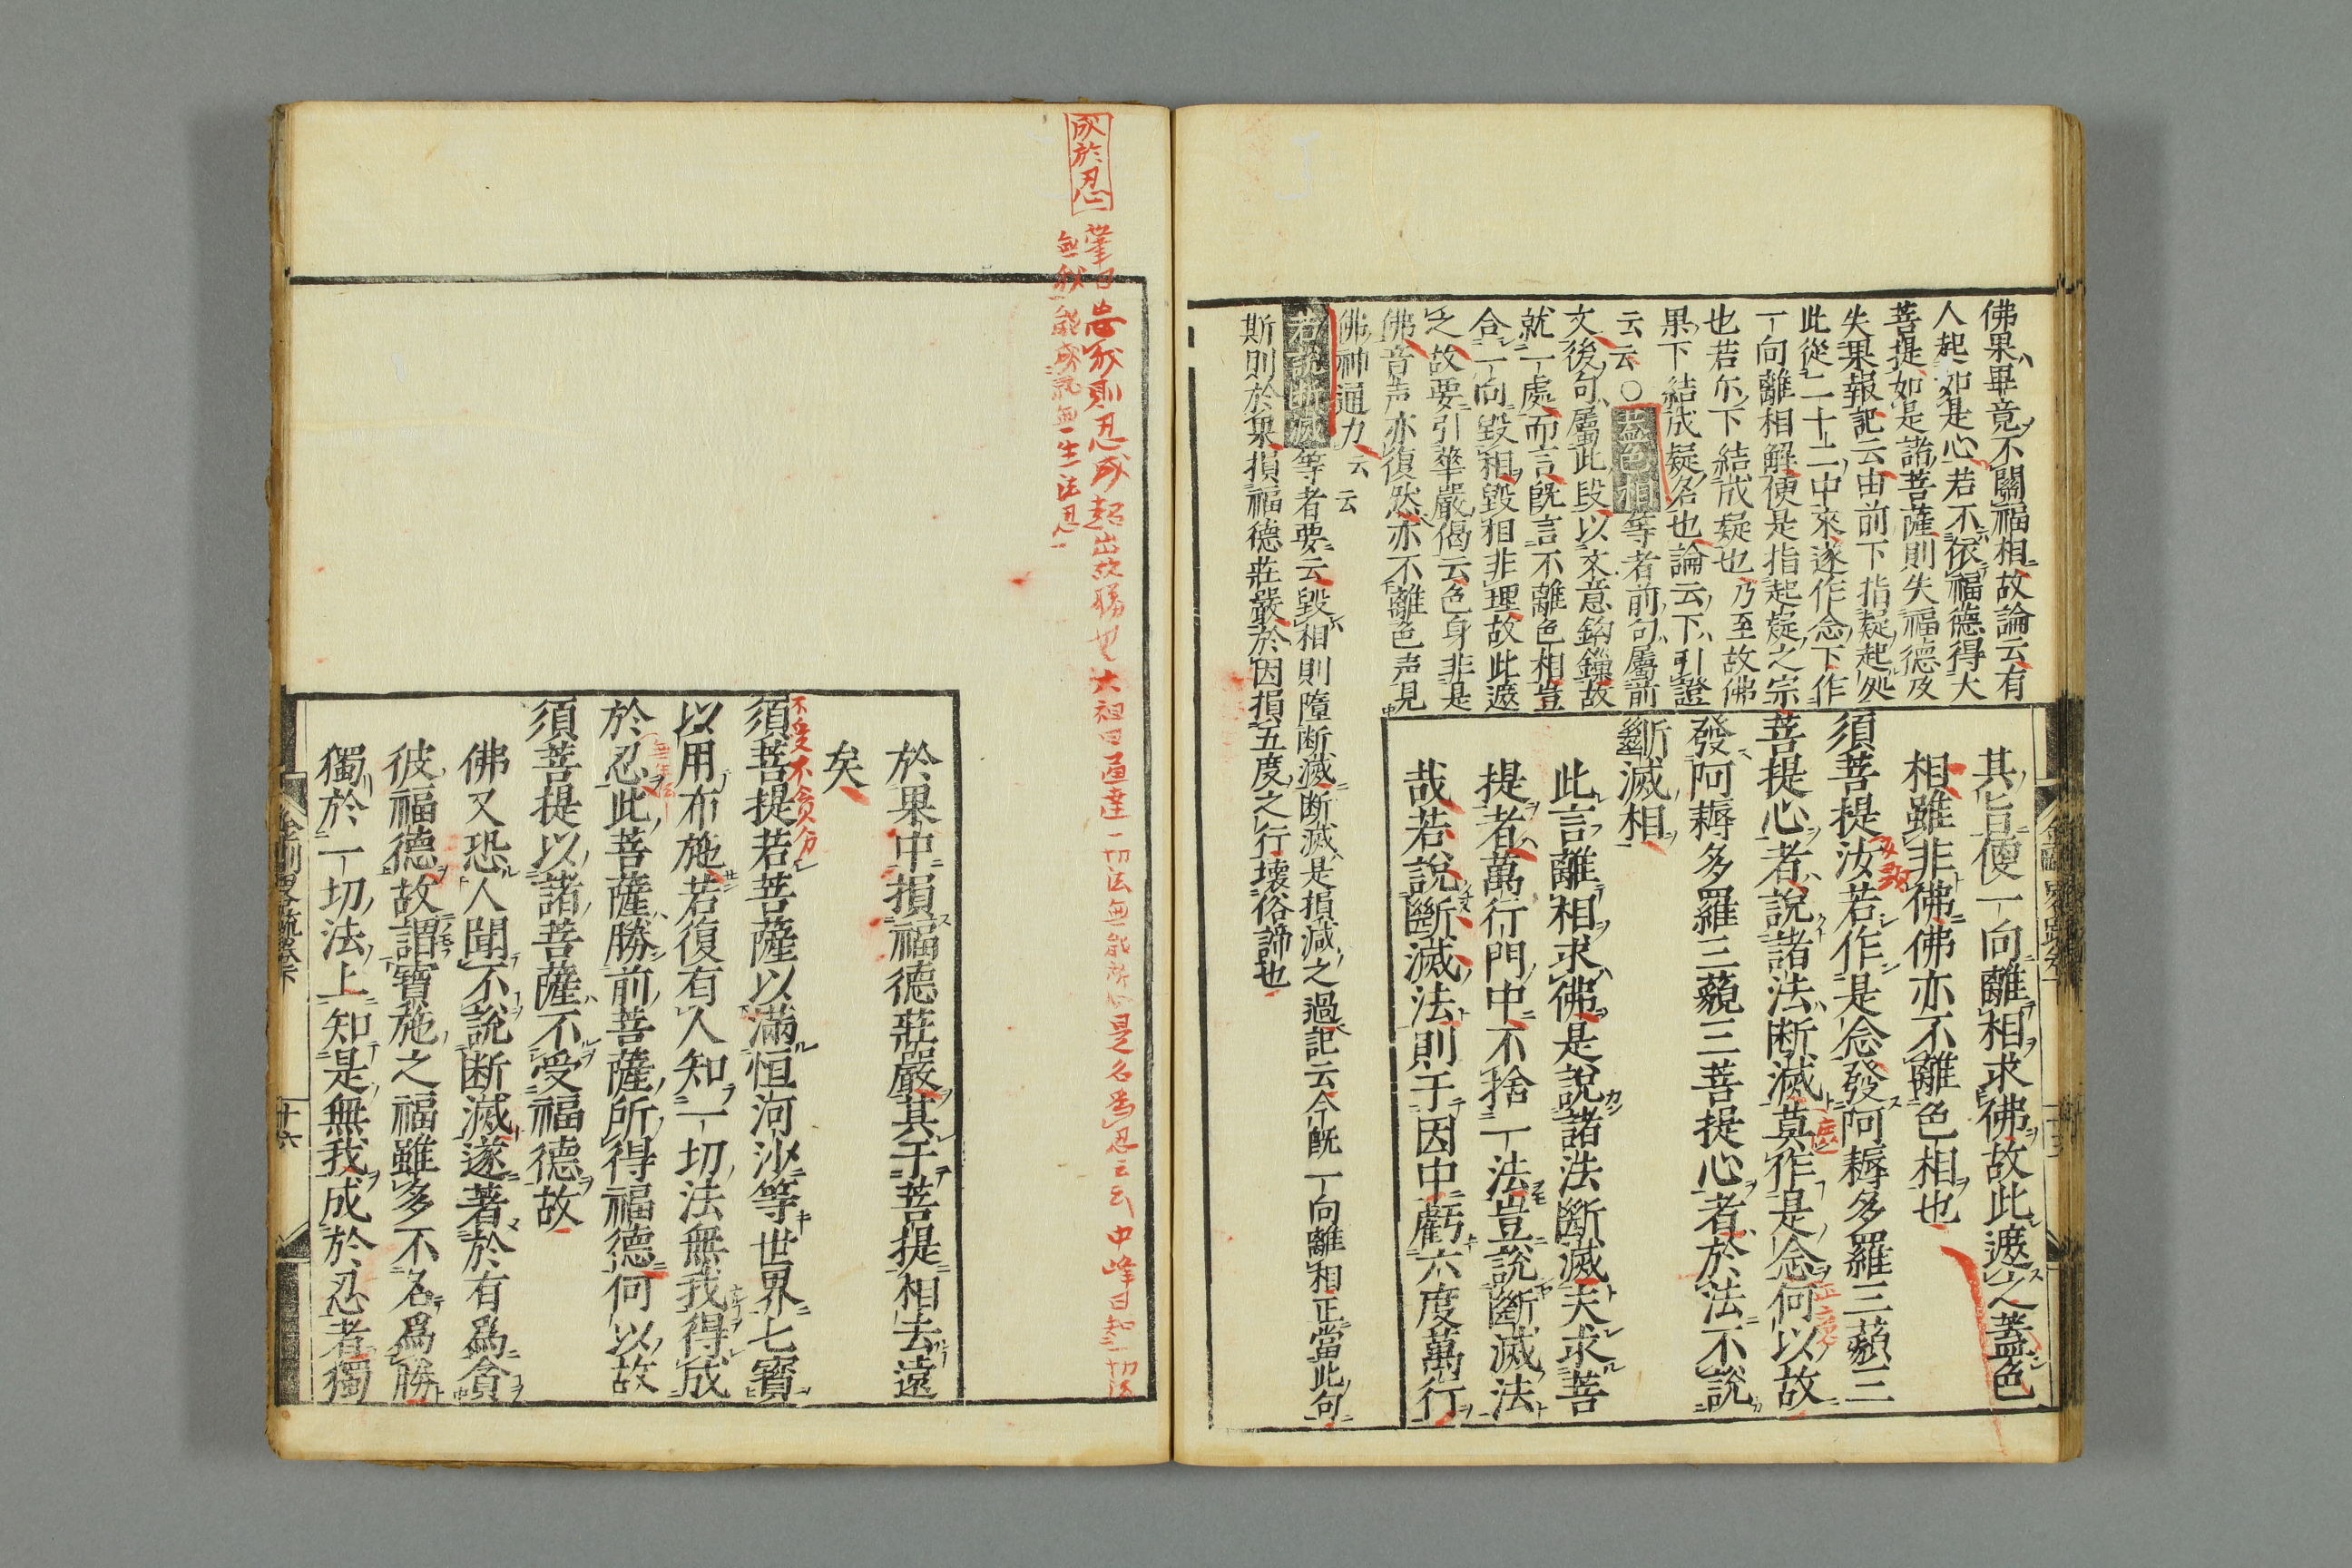 佛果畢竟不關福相故論云有
人起如是心若不依福德得大
菩提如是諸菩薩則失福德及
失果報記云由前下指疑起処
此從二十二中來遂作念下作
一向離相解便是指起疑之宗
也若尓下結成疑也乃至故佛
果下結成疑名也論云下引證
云云〇無色相等者前句屬前
文後句屬此段以文意鉤鏁故
就一處而言既言不離色相豈
合一向毀相毀相非理故此遮
之故要引華嚴偈云色身非是
佛音声亦復然亦不離色声見
佛神通力云云
若説断滅等者要云毀相則隨断滅断滅是損減之過記云今既一向離相正當此句
斯則於果損福德莊嚴於因損五度之行壊俗諦也
其旨便一向離相求佛故此遮之蓋色
相雖非佛佛亦不離色相也
須菩提汝若作是念發阿耨多羅三藐三
菩提心者説諸法断滅莫作是念何以故
發阿耨多羅三藐三菩提心者於法不説
斷滅相
此言離相求佛是説諸法斷滅夫求菩
提者萬行門中不捨一法豈説斷滅法
哉若説斷滅法則于因中虧六度萬行
成於忍
肇曰 忘我則忍成超出故勝也 六祖曰通達一切法無能所心是名為忍云云 中峰曰知一切法
無我能成就無生法忍
於果中損福德莊嚴其于菩提相去遠
矣
不受不貪分
須菩提若菩薩以滿恒河沙等世界七寶
以用布施若復有人知一切法無我得成
於忍此菩薩勝前菩薩所得福德何以故
須菩提以諸菩薩不受福德故
佛又恐人聞不説断滅遂著於有爲貪
彼福德故謂寶施之福雖多不名爲勝
獨於一切法上知是無我成於忍者獨
金剛略疏卷下
十六